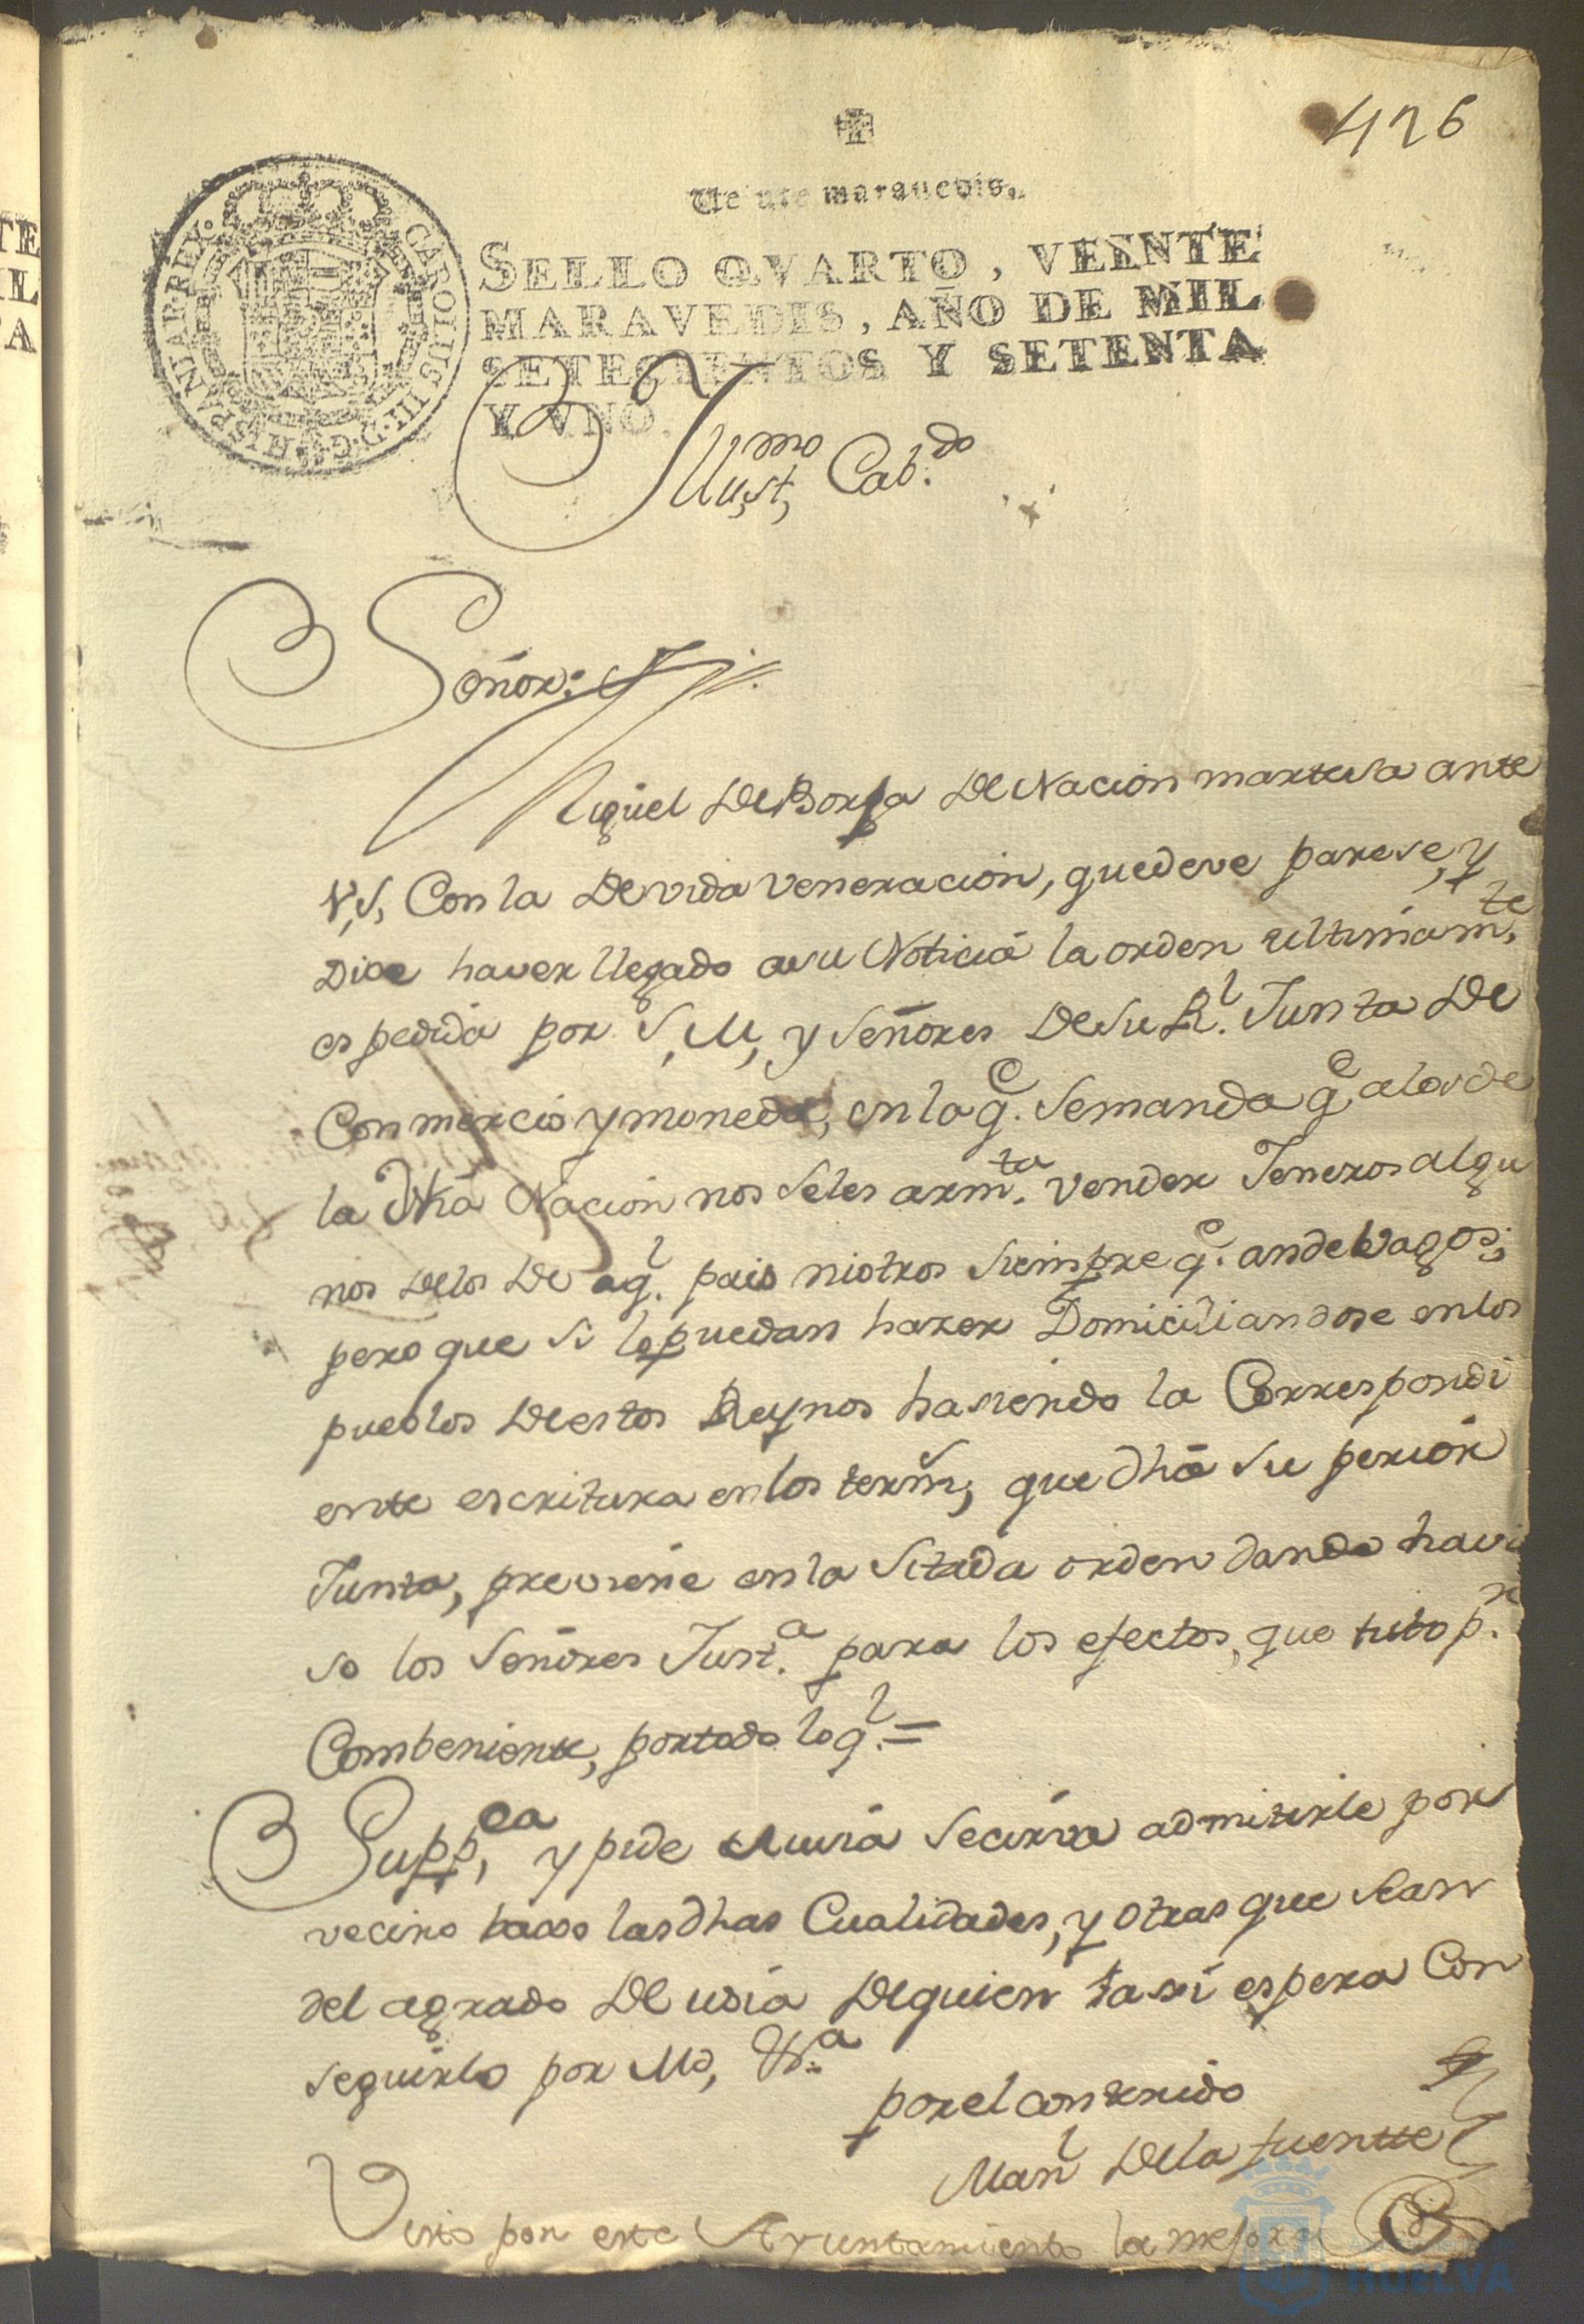 426
Veinte maravedis.
SELLO QVARTO, VEINTE
MARAVEDIS, AÑO DE MIL
SETECIENTOS Y SETENTA
Y VNO.
CAROLUS III D. G. HISPANIAR. REX.
TE
IL
TA
Yllust,mo Cab.do
Señor:
Miguel De Borja De Nacion martesa ante
V,S, Con la Devida veneracion, que deve parese, y
Dice haver llegado asu Noticia la orden ultimam,te
espedida por S, M, y Señores De su Rl. Junta De
Conmercio y moneda, en la qe. se manda qe a los de
la Dhã Nacion nos seles arm.ta vender Jeneros algu
nos delos De aql. pais niotros siempre qe. ande Vagos;
pero que si lo puedan hazer Domiciliandose en los
pueblos De estos Reynos hasiendo la Correspondi
ente escritura en los term,s que dhã su perior
Junta, previene en la Sitada orden dando havi
so los Señores Just.a para los efectos, que tubo p.r
Combeniente, por todo lo ql. =
Supp,ca y pide a usia se cirva admitirle por
vecino baxo las dhas Cualidades, y otras que sean
del agrado De usia De quien tasi espera Con
seguirlo por Md, &.a
por el contenido
Manl De la fuentte
Visto por este Ayuntamiento la
HUELVA